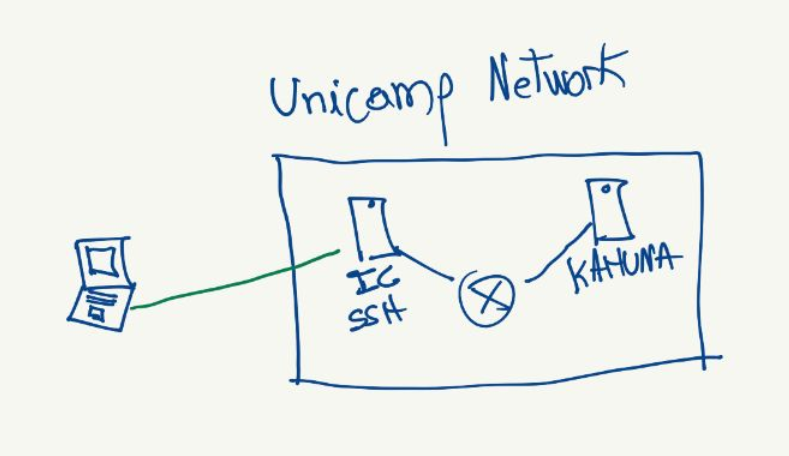 Unicamp Network
IC
SSH
KAHUNA